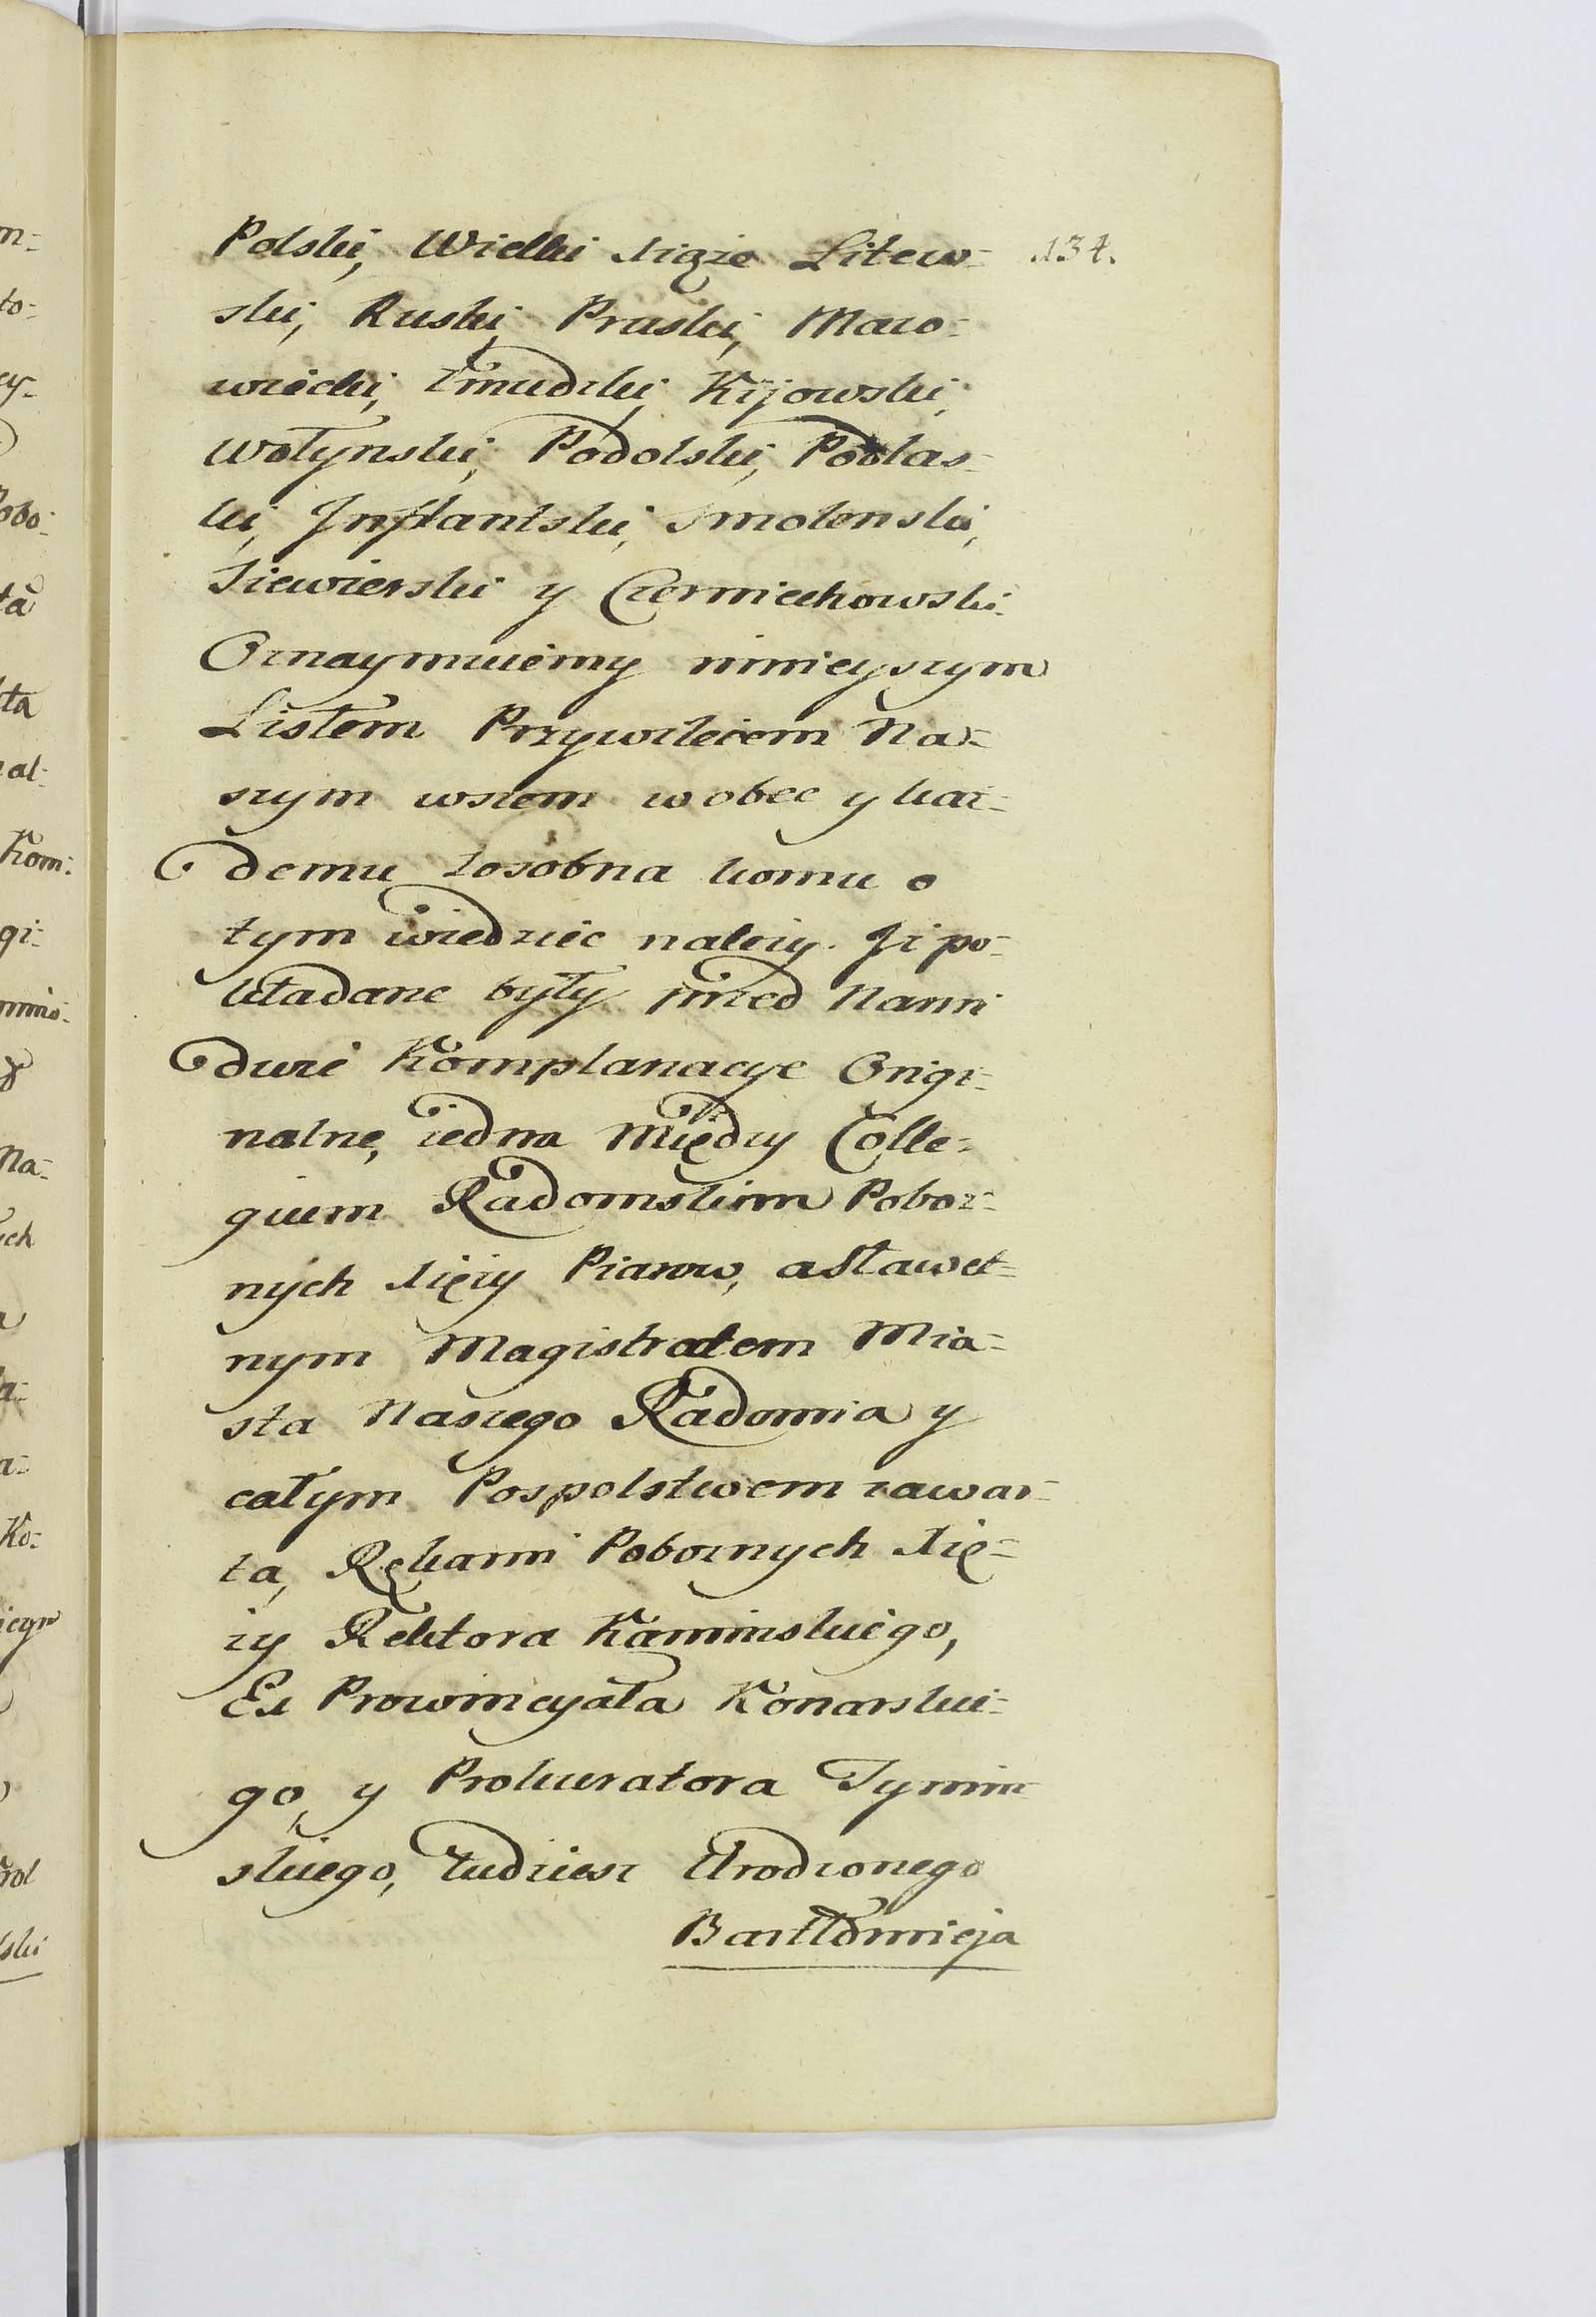 Polski, Wielki Xiąże Litew= 134.
ski, Ruski, Pruski, Mazo=
wiecki, Zmudzki, Kijowski,
Wołynski, Podolski, Podlas=
ki, Inflantski, Smolenski,
Siewierski y Czerniechowski.
Oznaymuiemy ninieyszym
Listem Przywileiem Na=
szym wszem wobec y kaz=
demu zosobna komu o
tym wiedziec nalezy. Iz po=
kładane były przed Nami
dwie Komplanacye Origi=
nalne, iedna Między Colle=
gium Radomskim Poboz=
nych Xięzy Piarow, a Sławet=
nym Magistratem Mia=
sta Naszego Radomia y
całym Pospolstwem zawar=
ta, Rękami Poboznych Xię=
zy Rektora Kaminskiego,
Ex Prowincyała Konarskie=
go, y Prokuratora Tymin=
skiego, tudziesz Urodzonego
Bartłomieja
m=
to=
cy=
Pobo=
ta
kta
al=
Kom:
gi=
Na=
ych
a=
Ko=
rol
ski